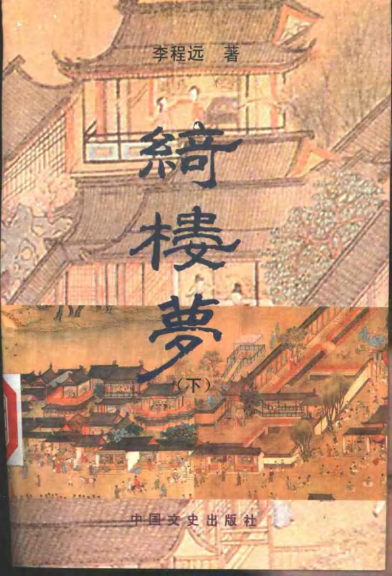 李程远 著
綺
樓
夢
(下)
中国文史出版社